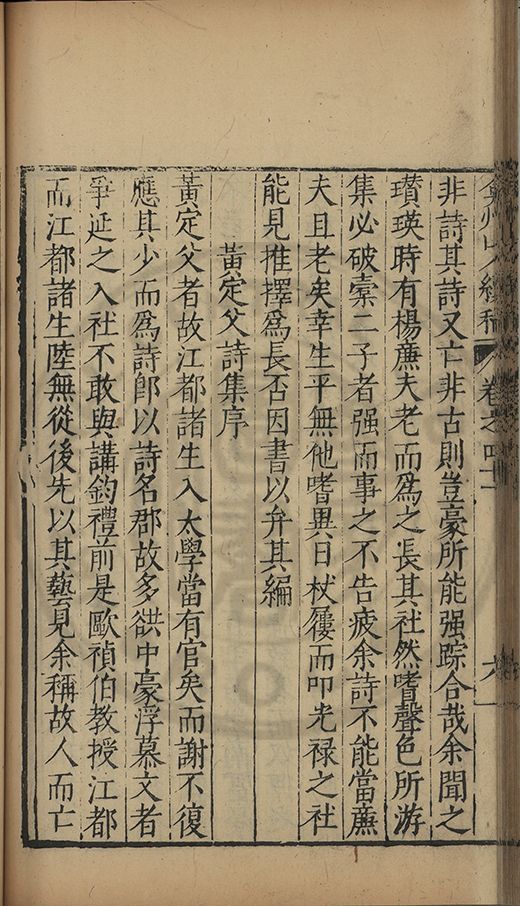 弇州山人續稿 卷之四十一 六
非詩其詩又亡非古則豈豪所能强踪合哉余聞之
瓚瑛時有楊廉夫老而爲之長其社然嗜聲色所游
集必破橐二子者强而事之不告疲余詩不能當廉
夫且老矣幸生平無他嗜異日杖屨而叩光禄之社
能見推擇爲長否因書以弁其編
黃定父詩集序
黃定父者故江都諸生入太學當有官矣而謝不復
應其少而爲詩郎以詩名郡故多谼中豪浮慕文者
爭延之入社不敢與講鈞禮前是歐禎伯教授江都
而江都諸生陸無從後先以其藝見余稱故人而亡